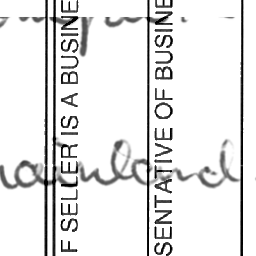 F SELLER IS A BUSINE
SENTATIVE OF BUSINE
mainland